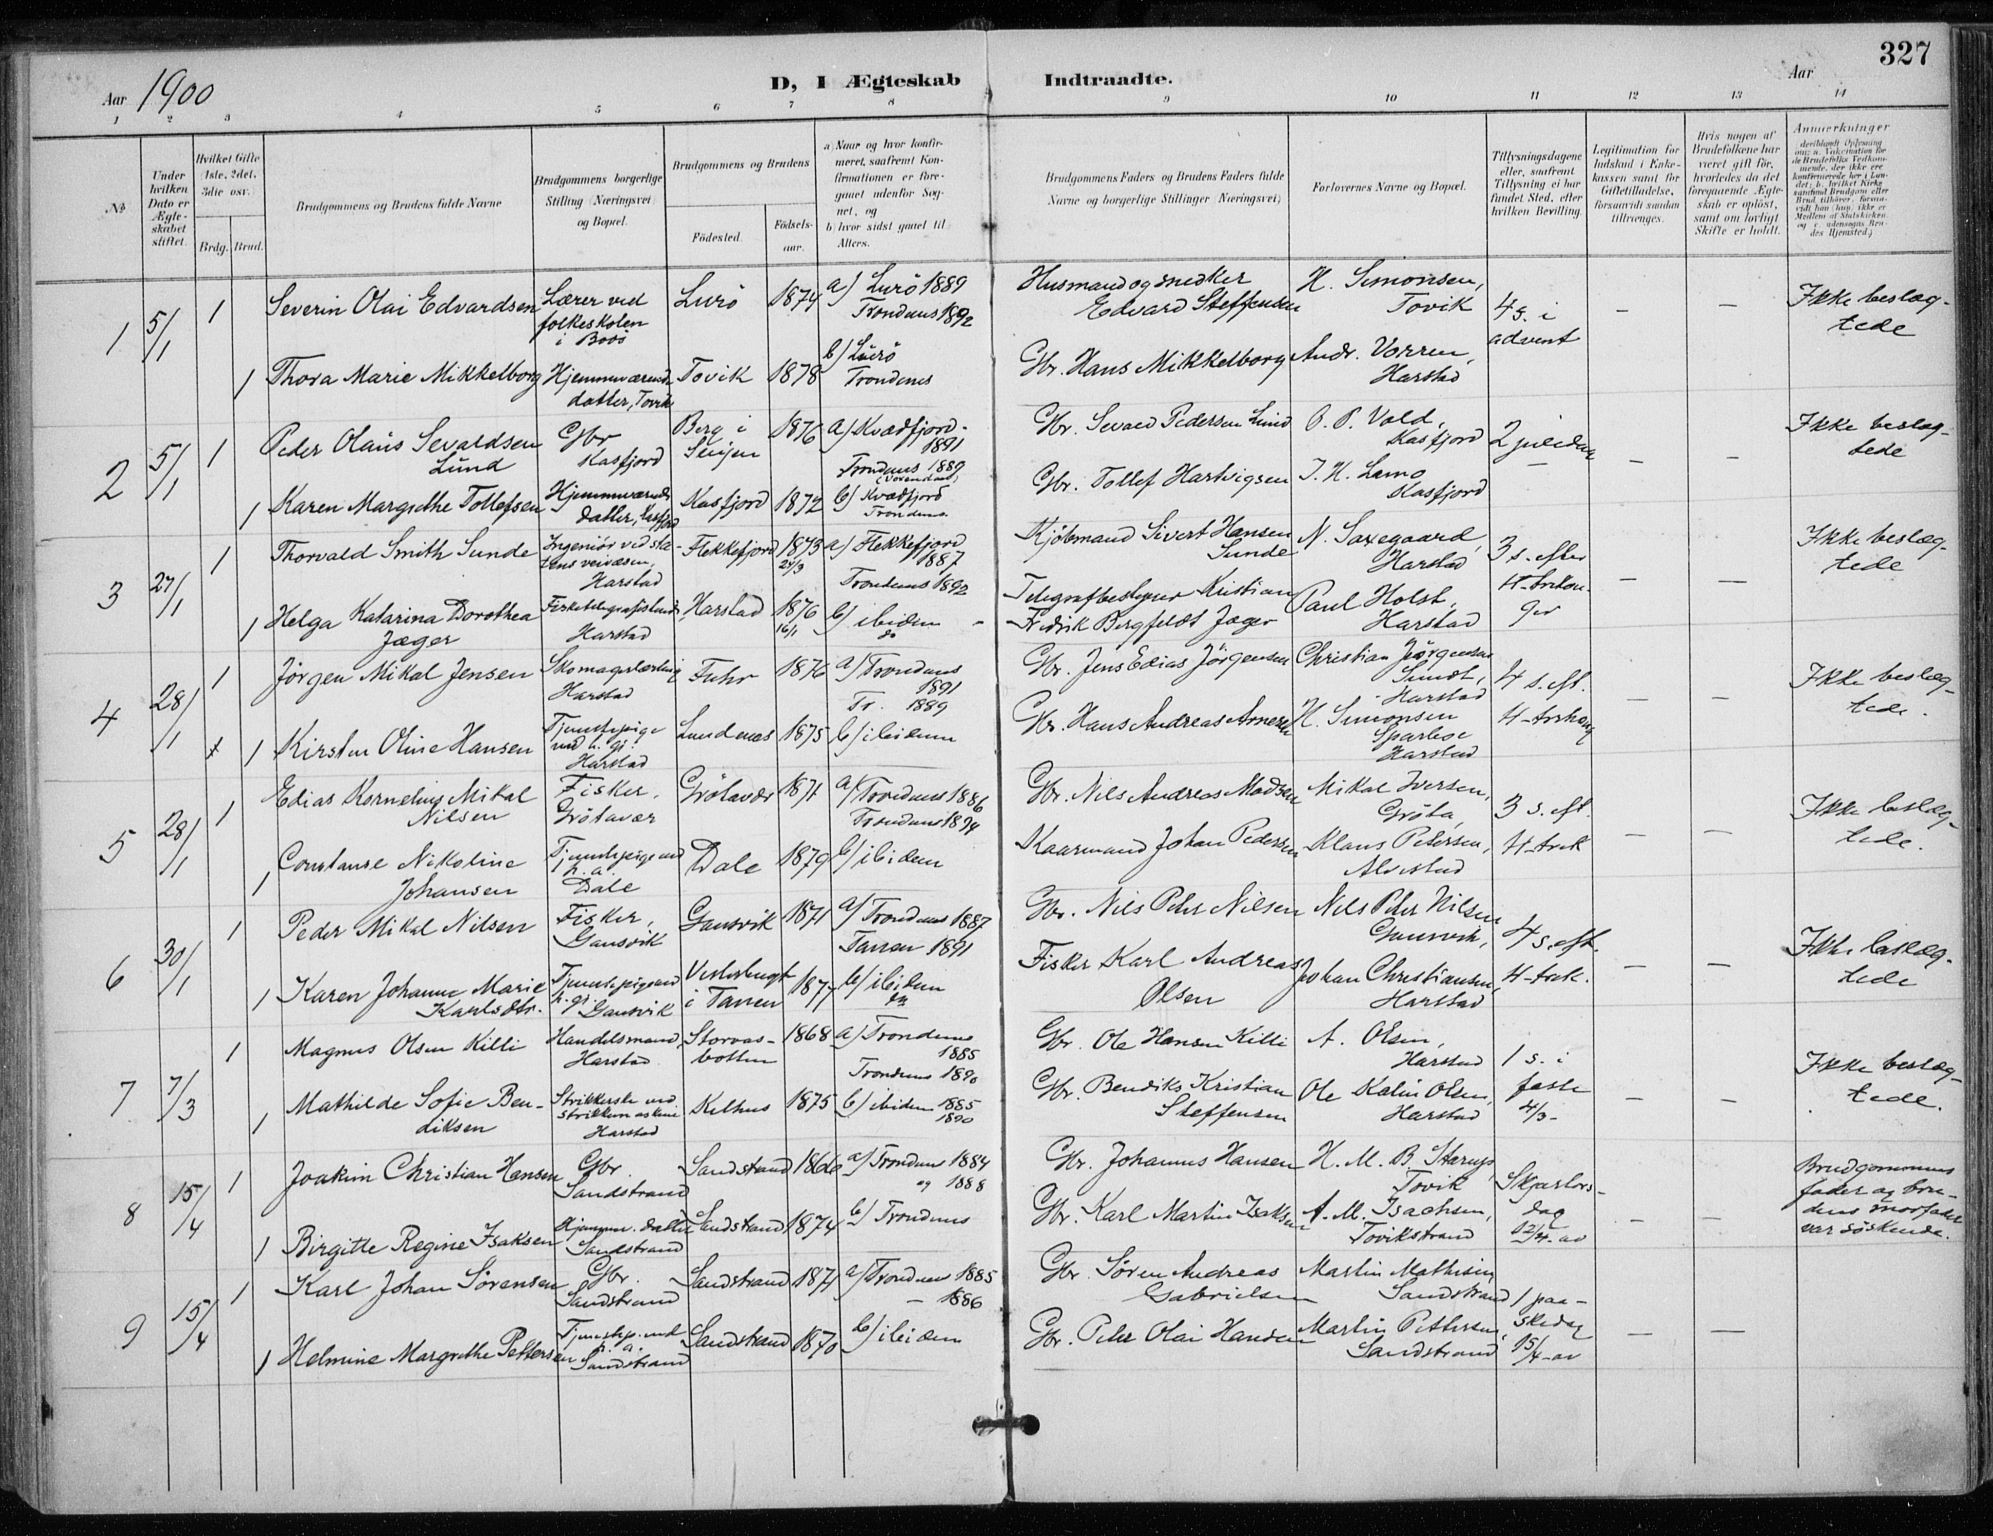 327
Aar 1900
D, I Ægteskab Indtraadte.
Aar
1 2 3 4 5 6 7 8 9 10 11 12 13 14
No
Under hvilken Dato er Ægteskabet stiftet.
Hvilket Gifte 1ste, 2det, 3die osv.
Brdg. Brud.
Brudgommens og Brudens fulde Navne
Brudgommens borgerlige Stilling (Næringsvei) og Bopæl.
Brudgommens og Brudens
Födested.
Födselsaar.
a) Naar og hvor konfirmeret, saafremt Konfirmationen er foregaaet udenfor Sognet, og
b) hvor sidst gaaet til Alters.
Brudgommens Faders og Brudens Faders fulde Navne og borgerlige Stillinger (Næringsvei)
Forlovernes Navne og Bopæl.
Tillysningsdagene eller, saafremt Tillysning ei har fundet Sted, efter hvilken Bevilling.
Legitimation for Indskud i Enkekassen samt for Giftetilladelse, forsaavidt saadan tiltrænges.
Hvis nogen af Brudefolkene har været gift för, hvorledes da det foregaaende Ægteskab er oplöst, samt om lovligt Skifte er holdt.
Anmerkninger
1 5/1 1 Severin Olai Edvardsen Lærer ved folkeskolen i Bodö Lurö 1874 a) Lurö 1889 Trondenes 1892 Husmand og snedker Edvard Steffensen H. Simonsen, Tovik 4 s. i advent – – Ikke beslægtede
1 Thora Marie Mikkelborg Hjemmeværende datter, Tovik Tovik 1878 b) Lurö Trondenes Gbr. Hans Mikkelborg Andr. Vorren, Harstad
2 5/1 1 Peder Olaus Sevaldsen Lund Gbr Kasfjord Berg i Senjen 1876 a) Kvædfjord 1891 Trondenes 1889 Gbr. Sevald Pedersen Lund O. P. Vold, Kasfjord 2 juledag – – Ikke beslægtede
1 Karen Margrethe Tollefsen Hjemmværende datter, Kasfjord Kasfjord 1872 b) Kvædfjord Trondenes Gbr. Tollef Hartvigsen Kasfjord
3 27/1 1 Thorvald Smith Sunde Ingeniör ved statens veivæsen, Harstad Flekkefjord 1873 24/3 a) Flekkefjord 1887 Trondenes 1892 Kjöbmand Sivert Hansen Sunde N. Saxegaard, Harstad 3 s. efter H-trekonger – – Ikke beslægtede
1 Helga Katarina Dorothea Jæger Harstad Harstad 1876 16/1 b) ibidem do Telegrafbestyrer Kristian Fredrik Bergfeldt Jæger Paul Holst, Harstad
4 28/1 1 Jörgen Mikal Jensen Skomagerlærling Harstad 1876 a) Trondenes 1891 Tr. 1889 Gbr. Jens Edias Jörgensen Christian Jörgensen Harstad 4 s. eft. – – Ikke beslægtede.
1 Kirsten Oline Hansen Tjenestepige ved h. gj. Harstad Lundenes 1875 b) ibidem Gbr. Hans Andreas H. Simonsen Harstad
5 28/1 1 Edias Kornelius Mikal Nilsen Fisker, Grötavær Grötavær 1871 a) Trondenes 1886 Trondenes 1894 Gbr. Nils Andreas Madsen Mikal Iversen, Gröta, 3 s. eft. H-trek – – Ikke beslægtede.
1 Constanse Nikoline Johansen Tjenestepige ved h. a. Dale Dale 1879 b) ibidem Kaarmand Johan Pedersen Klaus Petersen, Alvestad
6 30/1 1 Peder Mikal Nilsen Fisker, Gansvik Gansvik 1871 a) Trondenes 1887 Tranen 1891 Gbr. Nils Peter Nilsen Nils Peter Nilsen Gansvik, 4 s. eft. H-trek. – – Ikke beslægtede
1 Karen Johanne Marie Karlsdtr. Tjenestepige ved h. gj. Gansvik i Tranen 1877 b) ibidem do Fisker Karl Andreas Olsen Johan Christiansen, Harstad
7 7/3 1 Magnus Olsen Killi Handelsmand, Harstad Storvasbotten 1868 a) Trondenes 1885 Trondenes 1890 Gbr. Ole Hansen Killi A. Olsen, Harstad 1 s. i faste 4/3 – – Ikke beslægtede.
1 Mathilde Sofie Bendiksen Strikkerske ved strikkemaskine Harstad Kelhus 1875 b) ibidem 1885 1890 Gbr. Bendiks Kristian Steffensen Ole Kalin Olsen, Harstad
8 15/4 1 Joakim Christian Hansen Gbr. Sandstrand Sandstrand a) Trondenes 1884 og 1888 Gbr. Johannes Hansen H. M. B. Starup, Tovik Skjærtorsdag 12/4 – – Brudgommens fader og brudens morfader var söskende.
1 Birgitte Regine Isaksen Hjemmev. datter Sandstrand Sandstrand 1874 b) Trondenes Gbr. Karl Martin Isaksen A. M. Isachsen, Tovikstrand
9 15/4 1 Karl Johan Sörensen Gbr. Sandstrand Sandstrand 1871 a) Trondenes 1885 – 1886 Gbr. Sören Andreas Gabrielsen Martin Mathisen Sandstrand 1 paaskedag 15/4 – –
1 Helmine Margrethe Pettersen Tjenestep. ved h. a. Sandstrand Sandstrand 1870 b) ibidem Gbr. Peter Olai Hansen Martin Pettersen, Sandstrand